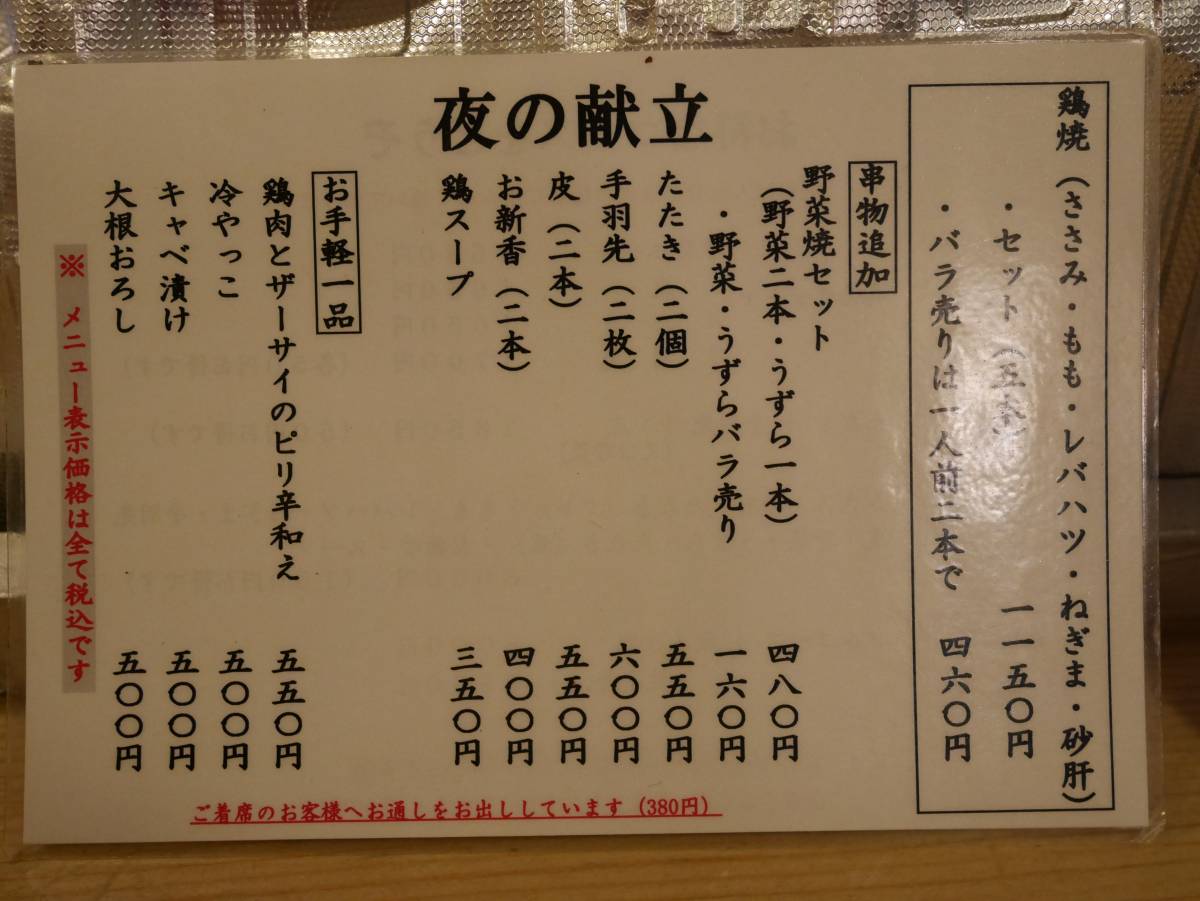 夜の献立
鶏焼(ささみ・もも・レバハツ・ねぎま・砂肝)
・セット(五本) 一一五〇円
・バラ売りは一人前二本で 四六〇円
串物追加
野菜焼セット
(野菜二本・うずら一本) 四八〇円
・野菜・うずらバラ売り 一六〇円
たたき(二個) 五五〇円
手羽先(二枚) 六〇〇円
皮(二本) 五五〇円
お新香(二本) 四〇〇円
鶏スープ 三五〇円
お手軽一品
鶏肉とザーサイのピリ辛和え 五五〇円
冷やっこ 五〇〇円
キャベ漬け 五〇〇円
大根おろし 五〇〇円
※ メニュー表示価格は全て税込です
ご着席のお客様へお通しをお出ししています(380円)